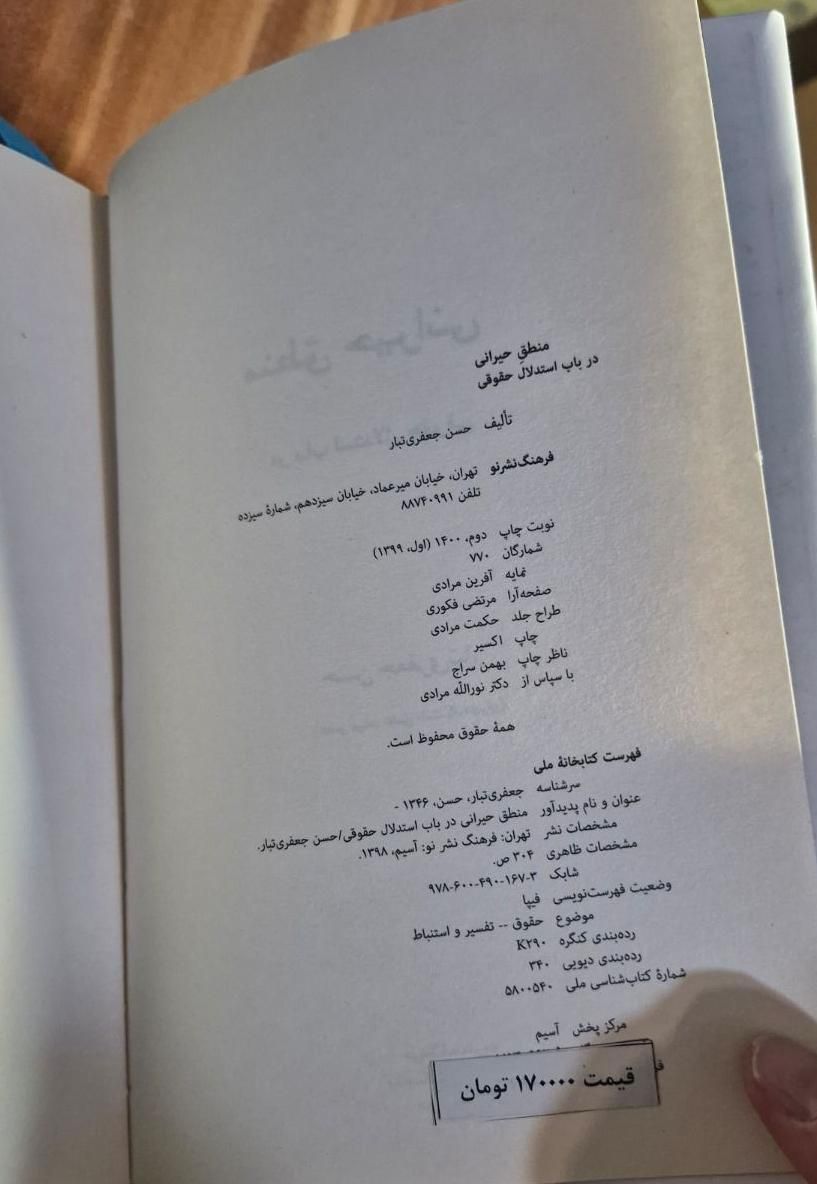 منطقِ حیرانی
در باب استدلال حقوقی
تألیف حسن جعفری‌تبار
فرهنگ‌نشرنو تهران، خیابان میرعماد، خیابان سیزدهم، شمارۀ سیزده
تلفن ۸۸۷۴۰۹۹۱
نوبت چاپ دوم، ۱۴۰۰ (اول، ۱۳۹۹)
شمارگان ۷۷۰
نمایه آفرین مرادی
صفحه‌آرا مرتضی فکوری
طراح جلد حکمت مرادی
چاپ اکسیر
ناظر چاپ بهمن سراج
با سپاس از دکتر نورالله مرادی
همۀ حقوق محفوظ است.
فهرست کتابخانۀ ملی
سرشناسه جعفری‌تبار، حسن، ۱۳۴۶ -
عنوان و نام پدیدآور منطق حیرانی در باب استدلال حقوقی/حسن جعفری‌تبار.
مشخصات نشر تهران: فرهنگ نشر نو: آسیم، ۱۳۹۸.
مشخصات ظاهری ۳۰۴ ص.
شابک ۹۷۸-۶۰۰-۴۹۰-۱۶۷-۳
وضعیت فهرست‌نویسی فیپا
موضوع حقوق -- تفسیر و استنباط
رده‌بندی کنگره K۲۹۰
رده‌بندی دیویی ۳۴۰
شمارۀ کتاب‌شناسی ملی ۵۸۰۰۵۴۰
مرکز پخش آسیم
قیمت ۱۷۰۰۰۰ تومان